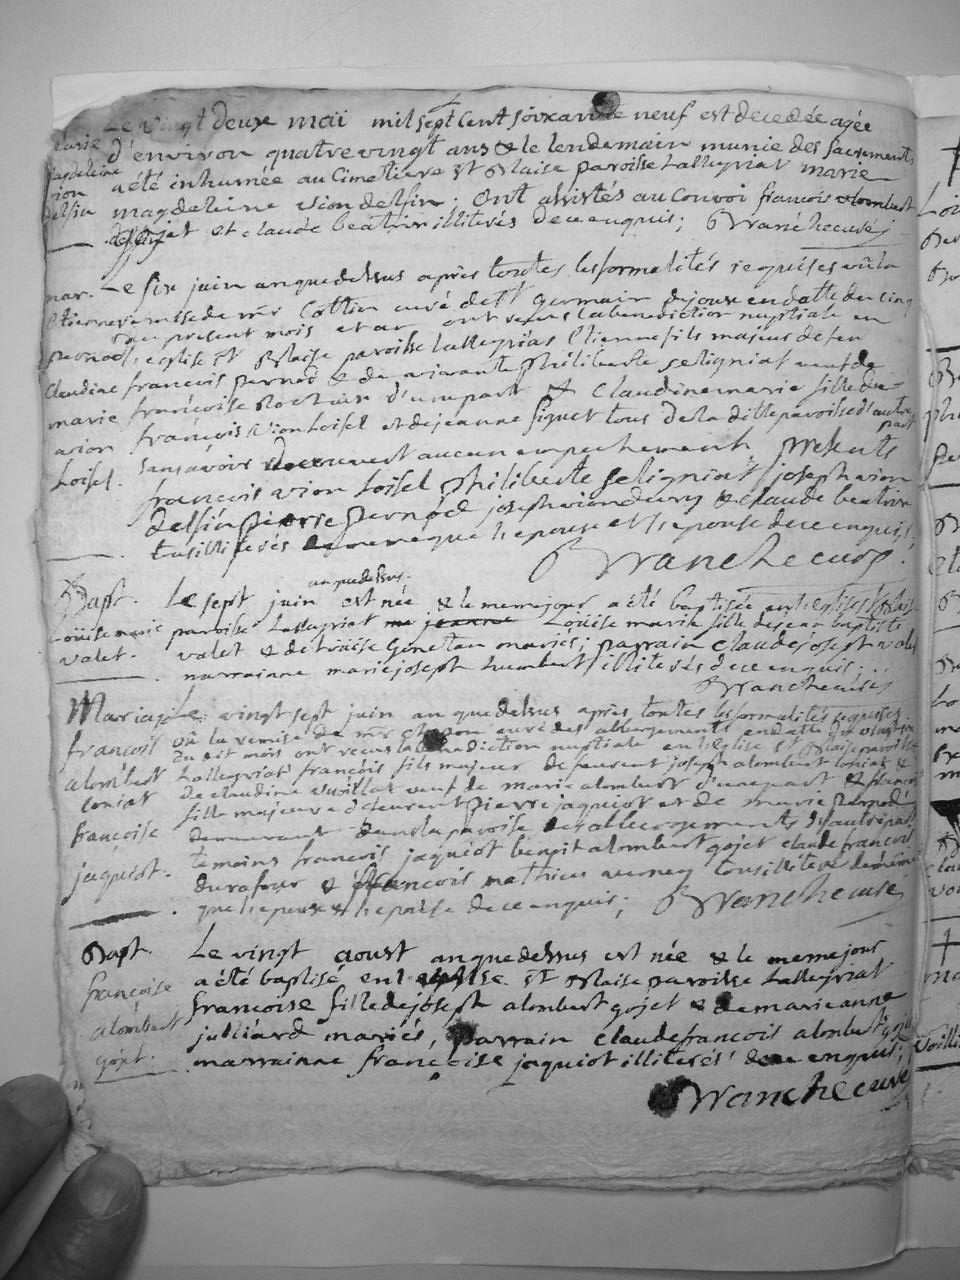 Le vingt deux mai mil sept cent soixante neuf est decedée agée
marie d'environ quatre vingt ans & le lendemain munie des sacrements
magdeleine a été inhumée au Cimetiere St Blaise paroisse Lallegriat marie
vion delfin magdeleine vion delfin. Ont assistés au Convoi françois alombert
gojet et claude beatrix illiterés de ce enquis; Branche curé
mar. Le six juin an que dessus après toutes les formalités requises vû la
remise de mr Cottin curé de St germain de joux en datte du cinq
du present mois et an ont reçus la benediction nuptiale en
pernod l'eglise St Blaise paroisse Lallegriat Etienne fils majeur de feu
Claudine françois pernod & de vivante philiberte seligniat veuf de
marie françoise d'une part & Claudine marie fille de
vion françois vion Loisel et de jeanne figuet tous de la ditte paroisse d'autre part
Loisel. sans avoir decouvert aucun empechement. presents
françois vion Loisel philiberte seligniat joseph vion
delfin pierre pernod joseph vion & claude beatrix
tus illiterés de meme que l'epoux et l'epouse de ce enquis;
Branche curé.
an que dessus.
Bapt. Le sept juin est née & le meme jour a été baptisée en l'eglise St Blaise
Loüise marie paroisse Lallegriat jeanne Loüise marie fille de jean baptiste
valet. valet & de loüise Genetan mariés; parrain claude josept valet
marrainne marie joseph humbert illiterés de ce enquis.
Branche curé
Mariage Le vingt sept juin an que dessus après toutes les formalités requises
françois vû la remise de mr curé des abbergements en datte du vingt
alombert du dit mois ont reçus la benediction nuptiale en l'eglise St Blaise paroisse
coniat Lallegriat françois fils majeur de feu joseph alombert coniat &
de claudine vuillat veuf de marie alombert d'une part & françoise
françoise fille majeure d'feu pierre jaquiot et de marie
demeurant dans la paroisse des abbergements d'autre part
jaquiot. temoins françois jaquiot benoit alombert gojet claude françois
durafour & françois mathieu tous illiterés de meme
que l'epoux & l'epouse de ce enquis; Branche curé
Bapt. Le vingt aoust an que dessus est née & le meme jour
françoise a été baptisé en l'eglise St Blaise paroisse Lallegriat
alombert françoise fille de joseph alombert gojet & de marie anne
gojet. julliard mariés, parrain claude francois alombert gojet
marrainne françoise jaquiot illiterés de ce enquis;
Branche curé